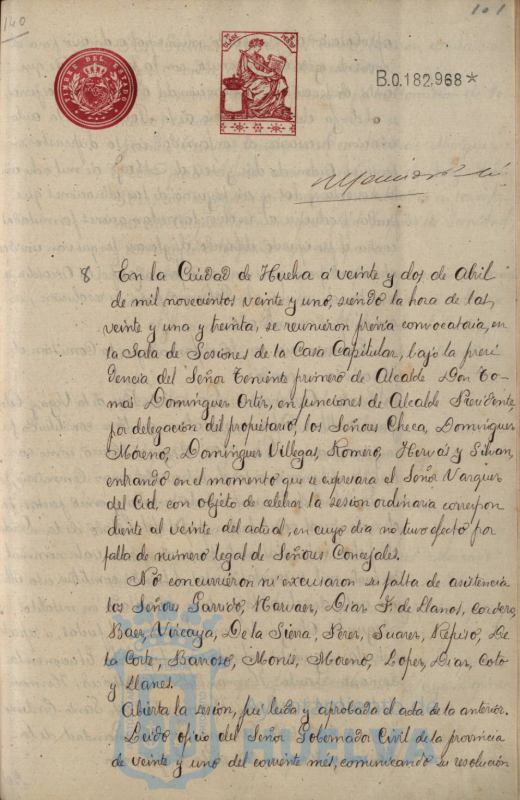 140
101
TIMBRE DEL ESTADO
B.0.182,968*
8 En la Ciudad de Huelva á veinte y dos de Abril
de mil novecientos veinte y uno, siendo la hora de las
veinte y una y treinta, se reunieron prévia convocatoria, en
la Sala de Sesiones de la Casa Capitular, bajo la presi
dencia del Señor Teniente primero de Alcalde Don To-
más Dominguez Ortiz, en funciones de Alcalde Presidente,
por delegación del propietario, los Señores Checa, Dominguez
Moreno, Dominguez Villegas, Romero, Hervás y Silvan,
entrando en el momento que se expresará el Señor Vazquez
del Cid, con objeto de celebrar la sesion ordinaria correspon
diente al veinte del actual, en cuyo dia no tuvo efecto por
falta de numero legal de Señores Concejales.
No concurrieron ni excusaron su falta de asistencia
los Señores Garrido, Narvaez, Diaz F. de Llanos, Cordero,
Baez, Vizcaya, De la Sierra, Perez, Suarez, Repiso, De
la Corte, Barroso, Monis, Moreno, Lopez, Diaz, Coto
y Llanes.
Abierta la sesión, fué leida y aprobada el acta de la anterior.
Leido oficio del Señor Gobernador Civil de la provincia
de veinte y uno del corriente més, comunicando su resolución
HUELVA